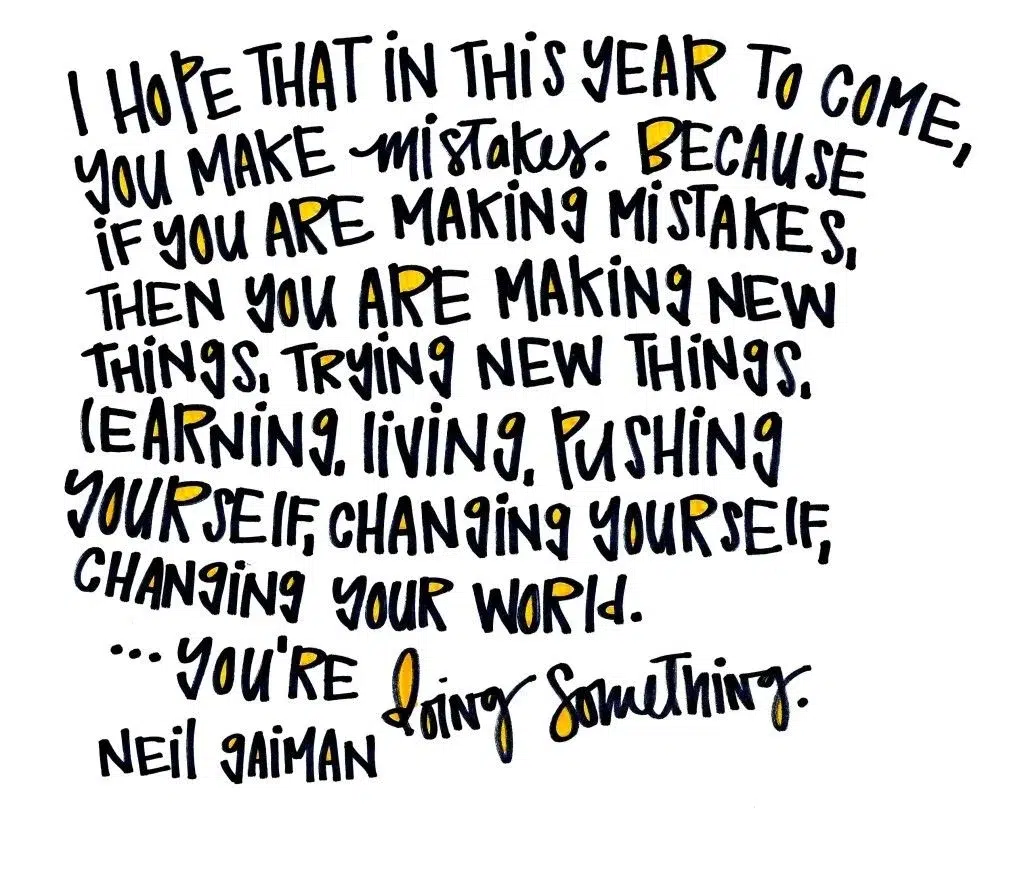 I HOPE THAT iN THiS YEAR TO COME,
YOU MAKE mistakes. BECAUSE
iF YOU ARE MAKiNg MiSTAKES,
THEN YOU ARE MAKiNg NEW
THiNgS, TRYiNg NEW THiNgS,
lEARNiNg, liViNg, PUSHiNg
YOURSElF, CHANgiNg YOURSElF,
CHANgiNg YOUR WORld.
...YOU'RE doing something.
NEil gAiMAN